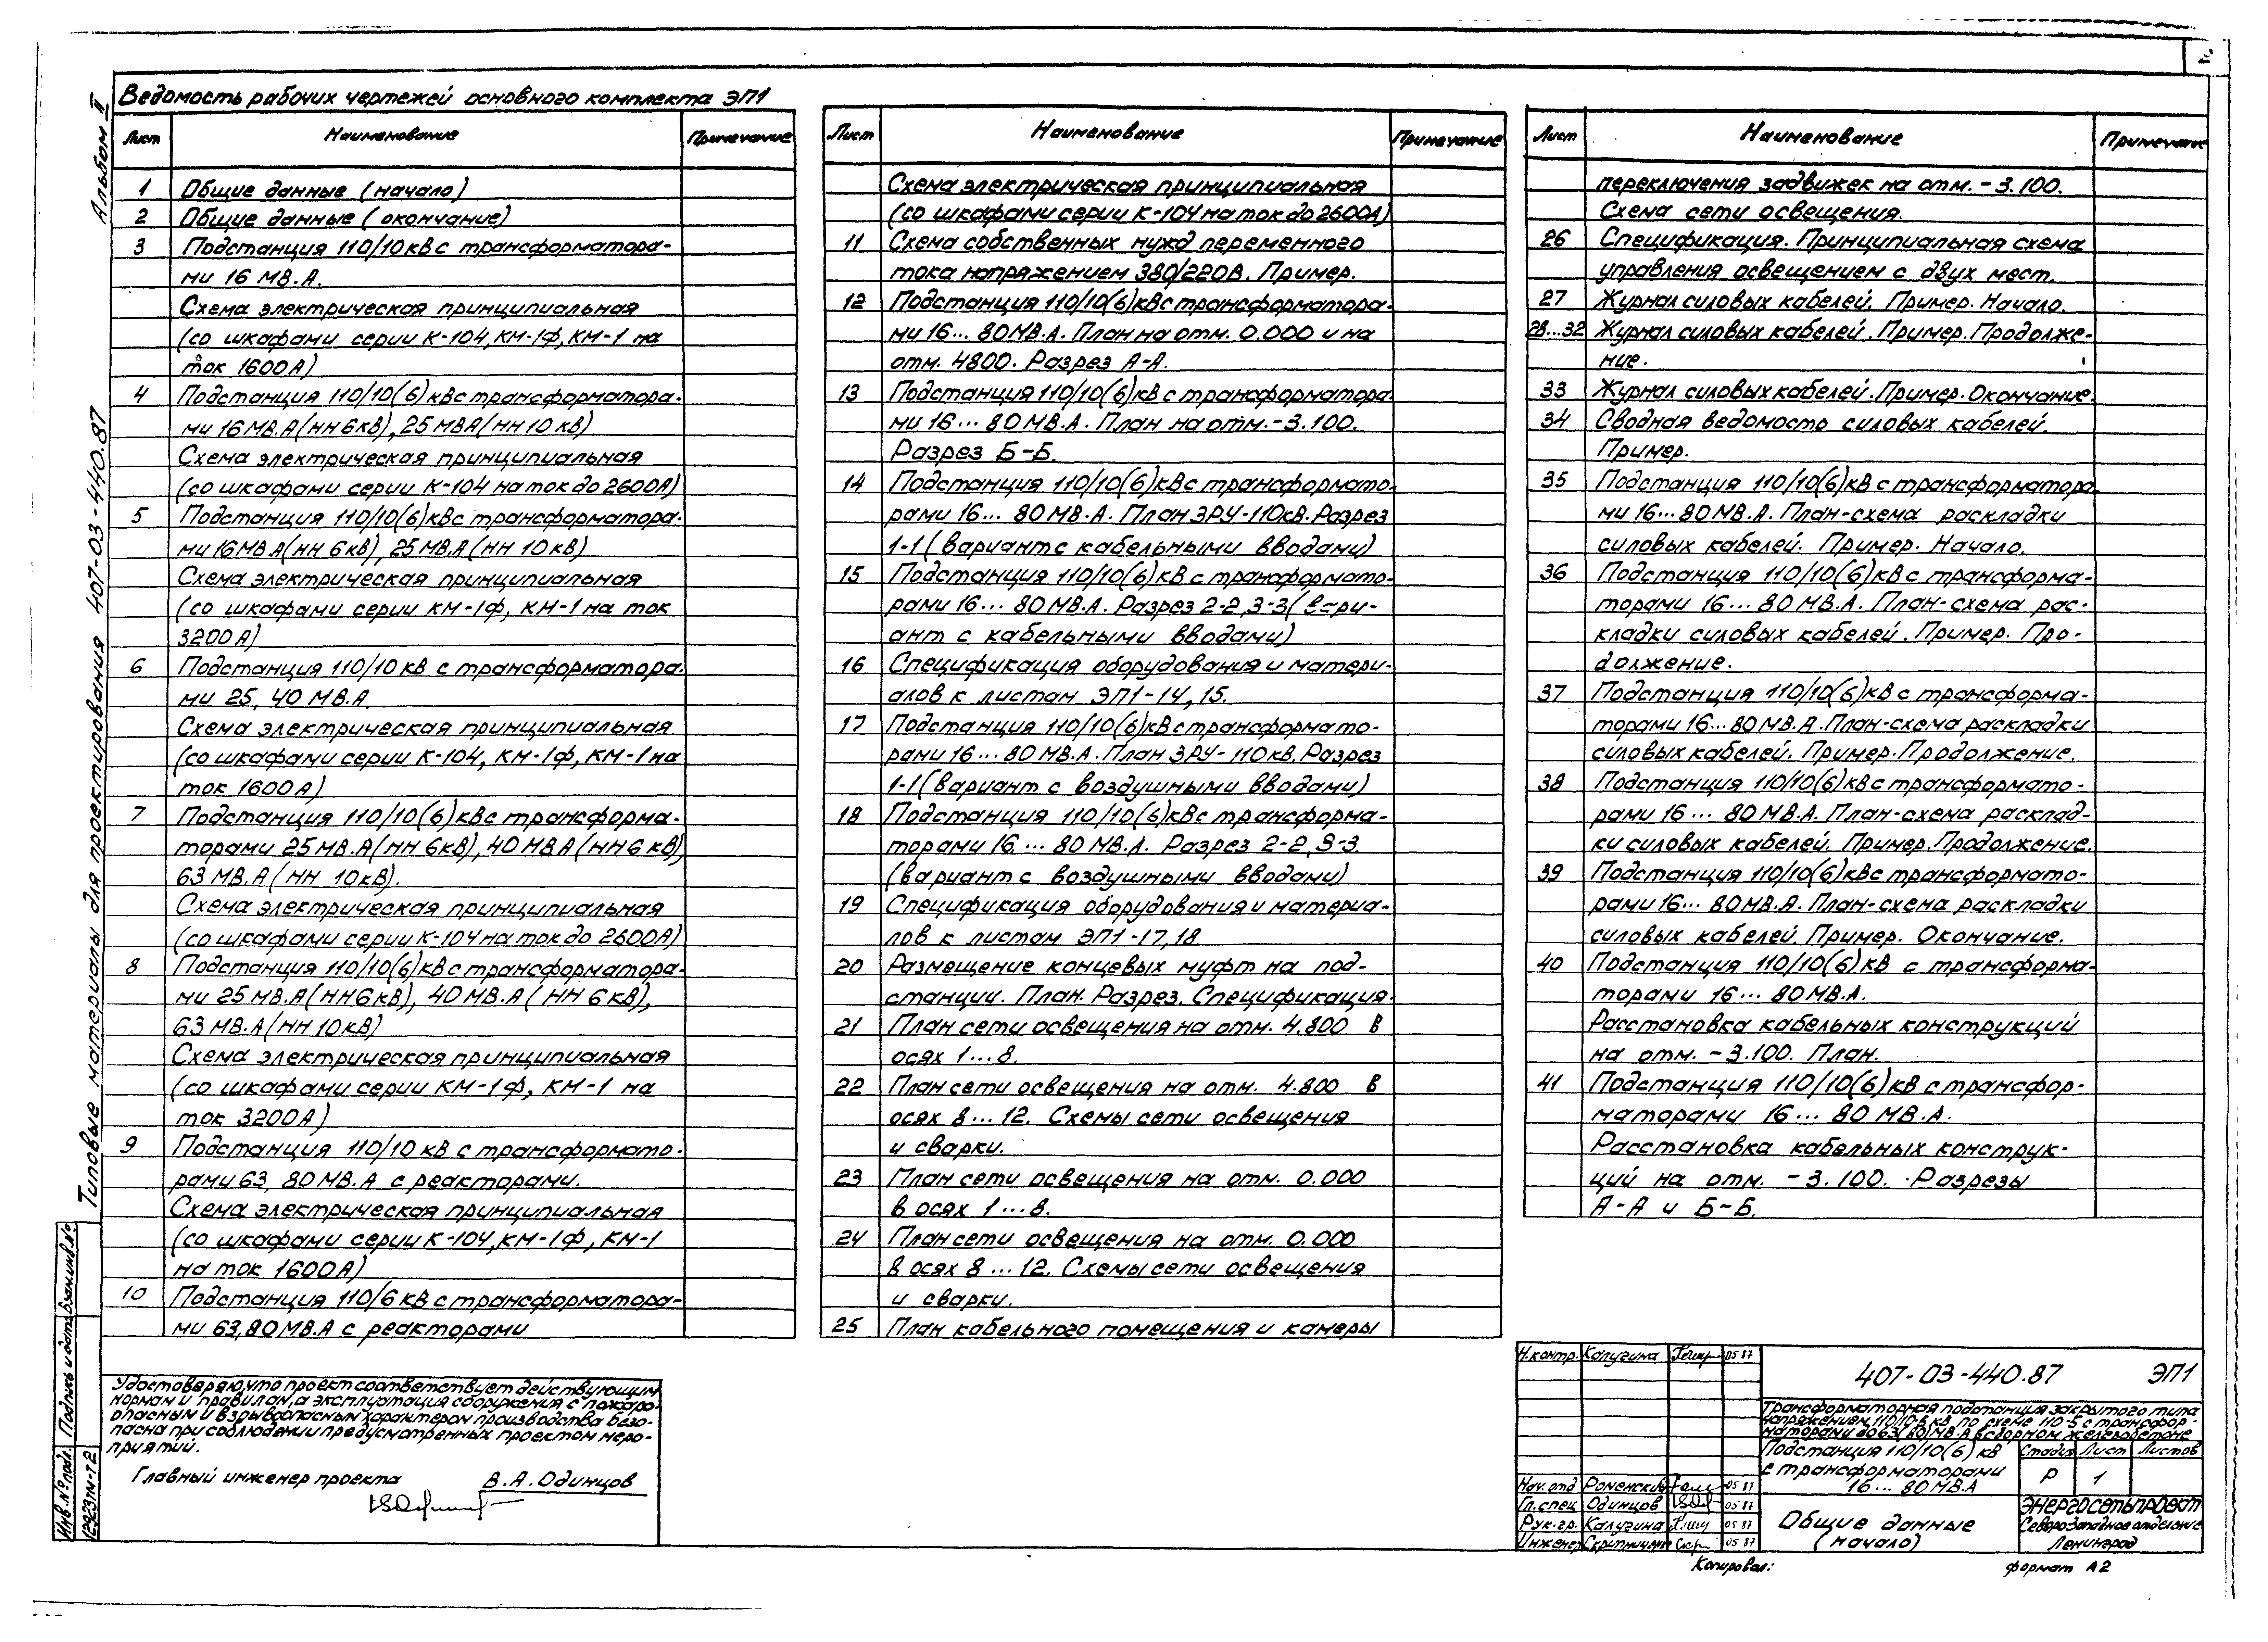 Альбом II
Типовые материалы для проектирования 407-03-440.87
Ведомость рабочих чертежей основного комплекта ЭП1
Лист Наименование Примечание
1 Общие данные (начало)
2 Общие данные (окончание)
3 Подстанция 110/10 кВ с трансформатора-
ми 16 МВ.А.
Схема электрическая принципиальная
(со шкафами серии К-104, КМ-1Ф, КМ-1 на
ток 1600А)
4 Подстанция 110/10(6) кВ с трансформатора-
ми 16 МВ.А (НН 6кВ), 25 МВА (НН 10 кВ)
Схема электрическая принципиальная
(со шкафами серии К-104 на ток до 2600А)
5 Подстанция 110/10(6) кВ с трансформатора-
ми 16 МВ.А (НН 6 кВ), 25 МВ.А (НН 10 кВ)
Схема электрическая принципиальная
(со шкафами серии КМ-1Ф, КМ-1 на ток
3200А)
6 Подстанция 110/10 кВ с трансформатора-
ми 25, 40 МВ.А.
Схема электрическая принципиальная
(со шкафами серии К-104, КМ-1Ф, КМ-1 на
ток 1600А)
7 Подстанция 110/10(6) кВ с трансформа-
торами 25 МВ.А (НН 6кВ), 40 МВА (НН 6 кВ),
63 МВ.А (НН 10кВ).
Схема электрическая принципиальная
(со шкафами серии К-104 на ток до 2600А)
8 Подстанция 110/10(6) кВ с трансформатора-
ми 25 МВ.А (НН 6кВ), 40 МВ.А (НН 6 кВ),
63 МВ.А (НН 10 кВ)
Схема электрическая принципиальная
(со шкафами серии КМ-1Ф, КМ-1 на
ток 3200А)
9 Подстанция 110/10 кВ с трансформато-
рами 63, 80 МВ.А с реакторами.
Схема электрическая принципиальная
(со шкафами серии К-104, КМ-1Ф, КМ-1
на ток 1600А)
10 Подстанция 110/6 кВ с трансформатора-
ми 63,80 МВ.А с реакторами
Лист Наименование Примечание
Схема электрическая принципиальная
(со шкафами серии К-104 на ток до 2600А)
11 Схема собственных нужд переменного
тока напряжением 380/220В. Пример.
12 Подстанция 110/10(6) кВ с трансформатора-
ми 16... 80 МВ.А. План на отм. 0.000 и на
отм. 4800. Разрез А-А.
13 Подстанция 110/10(6) кВ с трансформатора
ми 16... 80 МВ.А. План на отм. -3.100.
Разрез Б-Б.
14 Подстанция 110/10(6) кВ с трансформато-
рами 16... 80 МВ.А. План ЗРУ-110кВ. Разрез
1-1 (вариант с кабельными вводами)
15 Подстанция 110/10(6) кВ с трансформато-
рами 16... 80 МВ.А. Разрез 2-2, 3-3 (вари-
ант с кабельными вводами)
16 Спецификация оборудования и матери-
алов к листам ЭП1-14, 15.
17 Подстанция 110/10(6) кВ с трансформато-
рами 16... 80 МВ.А. План ЗРУ-110 кВ. Разрез
1-1 (вариант с воздушными вводами)
18 Подстанция 110/10(6) кВ с трансформа-
торами 16... 80 МВ.А. Разрез 2-2, 3-3.
(вариант с воздушными вводами)
19 Спецификация оборудования и материа-
лов к листам ЭП1-17, 18.
20 Размещение концевых муфт на под-
станции. План. Разрез. Спецификация.
21 План сети освещения на отм. 4.800 в
осях 1...8.
22 План сети освещения на отм. 4.800 в
осях 8...12. Схемы сети освещения
и сварки.
23 План сети освещения на отм. 0.000
в осях 1...8.
24 План сети освещения на отм. 0.000
в осях 8...12. Схемы сети освещения
и сварки.
25 План кабельного помещения и камеры
Лист Наименование Примечание
переключения задвижек на отм. -3.100.
Схема сети освещения.
26 Спецификация. Принципиальная схема
управления освещением с двух мест.
27 Журнал силовых кабелей. Пример. Начало.
28...32 Журнал силовых кабелей. Пример. Продолже-
ние.
33 Журнал силовых кабелей. Пример. Окончание.
34 Сводная ведомость силовых кабелей.
Пример.
35 Подстанция 110/10(6) кВ с трансформатора-
ми 16...80 МВ.А. План-схема раскладки
силовых кабелей. Пример. Начало.
36 Подстанция 110/10(6) кВ с трансформа-
торами 16... 80 МВ.А. План-схема рас-
кладки силовых кабелей. Пример. Про-
должение.
37 Подстанция 110/10(6) кВ с трансформа-
торами 16... 80 МВ.А. План-схема раскладки
силовых кабелей. Пример. Продолжение.
38 Подстанция 110/10(6) кВ с трансформато-
рами 16... 80 МВ.А. План-схема расклад-
ки силовых кабелей. Пример. Продолжение.
39 Подстанция 110/10(6) кВ с трансформато-
рами 16... 80 МВ.А. План-схема раскладки
силовых кабелей. Пример. Окончание.
40 Подстанция 110/10(6) кВ с трансформа-
торами 16... 80 МВ.А.
Расстановка кабельных конструкций
на отм. -3.100. План.
41 Подстанция 110/10(6) кВ с трансфор-
маторами 16... 80 МВ.А.
Расстановка кабельных конструк-
ций на отм. -3.100. Разрезы
А-А и Б-Б.
Удостоверяю, что проект соответствует действующим
нормам и правилам, а эксплуатация сооружения с пожаро-
опасным и взрывоопасным характером производства безо-
пасна при соблюдении предусмотренных проектом меро-
приятий.
Главный инженер проекта В.А.Одинцов
Инв.№ подл. Подпись и дата Взам.инв.№
12923тм-т2
Н.контр. Калугина 05 87
Нач.отд Роменский 05 87
Гл.спец Одинцов 05 87
Рук.гр. Калугина 05 87
Инженер 05 87
407-03-440.87 ЭП1
Трансформаторная подстанция закрытого типа
напряжением 110/10-6 кВ по схеме 110-5 с трансфор-
маторами до 63(80) МВ.А в сборном железобетоне
Подстанция 110/10(6) кВ
с трансформаторами
16... 80 МВ.А
Стадия Лист Листов
Р 1
Общие данные
(начало)
ЭНЕРГОСЕТЬПРОЕКТ
Северо-Западное отделение
Ленинград
Копировал:
формат А2